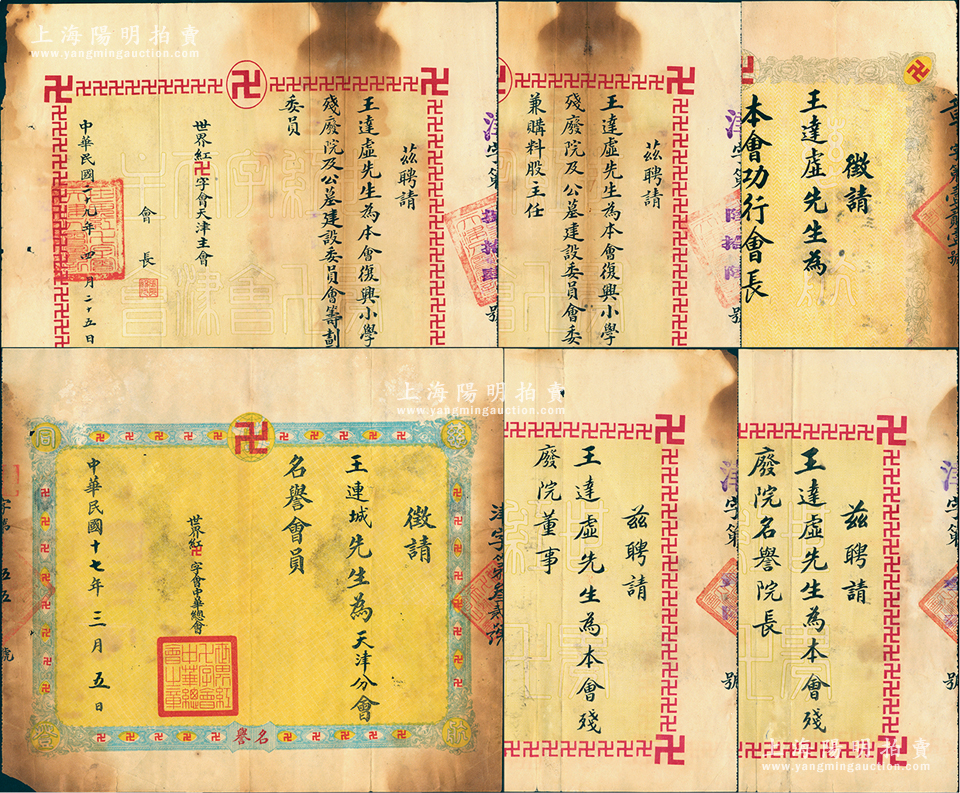 上海陽明拍賣
www.yangmingauction.com
茲聘請
王達虛先生為本會復興小學
殘廢院及公墓建設委員會籌劃
委員
世界紅卍字會天津主會
會長
中華民國二十九年四月二十五日
津字第
號
茲聘請
王達虛先生為本會復興小學
殘廢院及公墓建設委員會委
兼購料股主任
津字第
號
徵請
王達虛先生為
本會功行會長
上海陽明拍賣
www.yangmingauction.com
徵請
王連城先生為天津分會
名譽會員
世界紅卍字會中華總會
中華民國十七年三月五日
名譽
津字第叁貳號
字第五五號
同
登
茲聘請
王達虛先生為本會殘
廢院董事
津字第
號
茲聘請
王達虛先生為本會殘
廢院名譽院長
津字第
號
上海陽明拍賣
www.yangmingauction.com